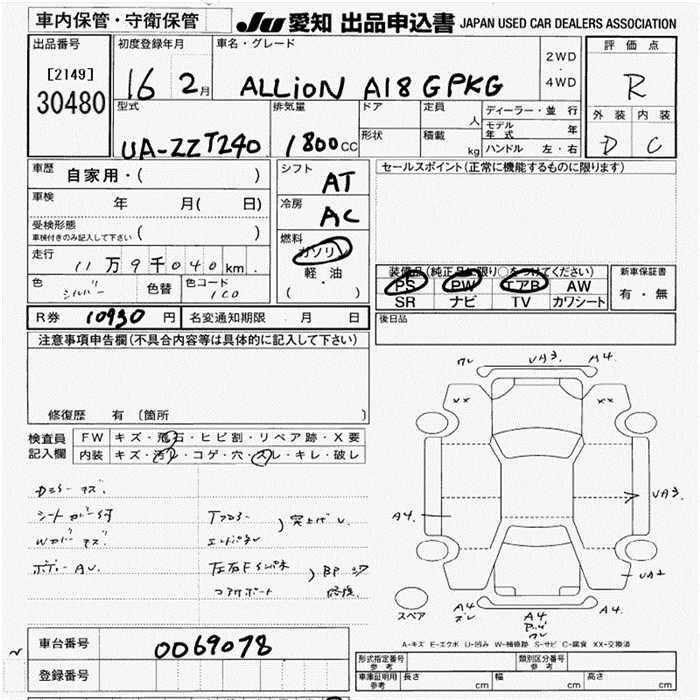 車内保管・守衛保管
JU 愛知 出品申込書 JAPAN USED CAR DEALERS ASSOCIATION
出品番号
[2149]
30480
初度登録年月
16 2月
車名・グレード
ALLiON A18 GPKG
2WD
4WD
評価点
R
外装 内装
D C
型式
UA-ZZT240
排気量
1800cc
ドア
形状
定員
人
積載
kg
ディーラー・並行
モデル年式 年
ハンドル 左・右
車歴 自家用・( )
車検 年 月( 日)
受検形態
車検付きのみ記入して下さい ( )
走行 11万9千040km.
色 シルバー 色替 色コード 1C0
シフト AT
冷房 AC
燃料 ガソリン
軽・油
( ・ )
セールスポイント(正常に機能するものに限ります)
装備品(純正品に限り○をつけてください)
PS PW エアB AW
SR ナビ TV カワシート
新車保証書
有・無
後日品
R券 10930円 名変通知期限 . 月 日
注意事項申告欄(不具合内容等は具体的に記入して下さい)
修復歴 有(箇所
検査員記入欄
FW キズ・飛石・ヒビ割・リペア跡・X要
内装 キズ・汚レ・コゲ・穴・スレ・キレ・破レ
シートカバー付
ボディー AU.
Tフロアー
エンドパネル
)突上げ
左右Fインパネ
コアサポート
)BP
修復
ワレ UA3. A4.
XX XX
A4.
UA3.
UA2
スペア
A4 ズレ
A4
ワレ
A4
A-キズ E-エクボ U-凹み W-補修跡 S-サビ C-腐食 XX-交換済
車台番号 0069078
登録番号
形式指定番号 参考
類別区分番号 参考
車庫証明用 参考 長さ cm 幅 cm 高さ cm